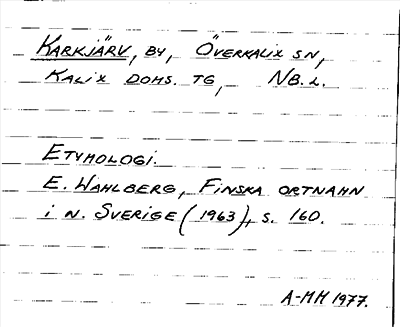 KARKJÄRV, BY, ÖVERKALIX SN,
KALIX DOMS. TG, NB.L.
ETYMOLOGI.
E. WAHLBERG, FINSKA ORTNAMN
i N. SVERIGE (1963), S. 160.
A-MM 1977.